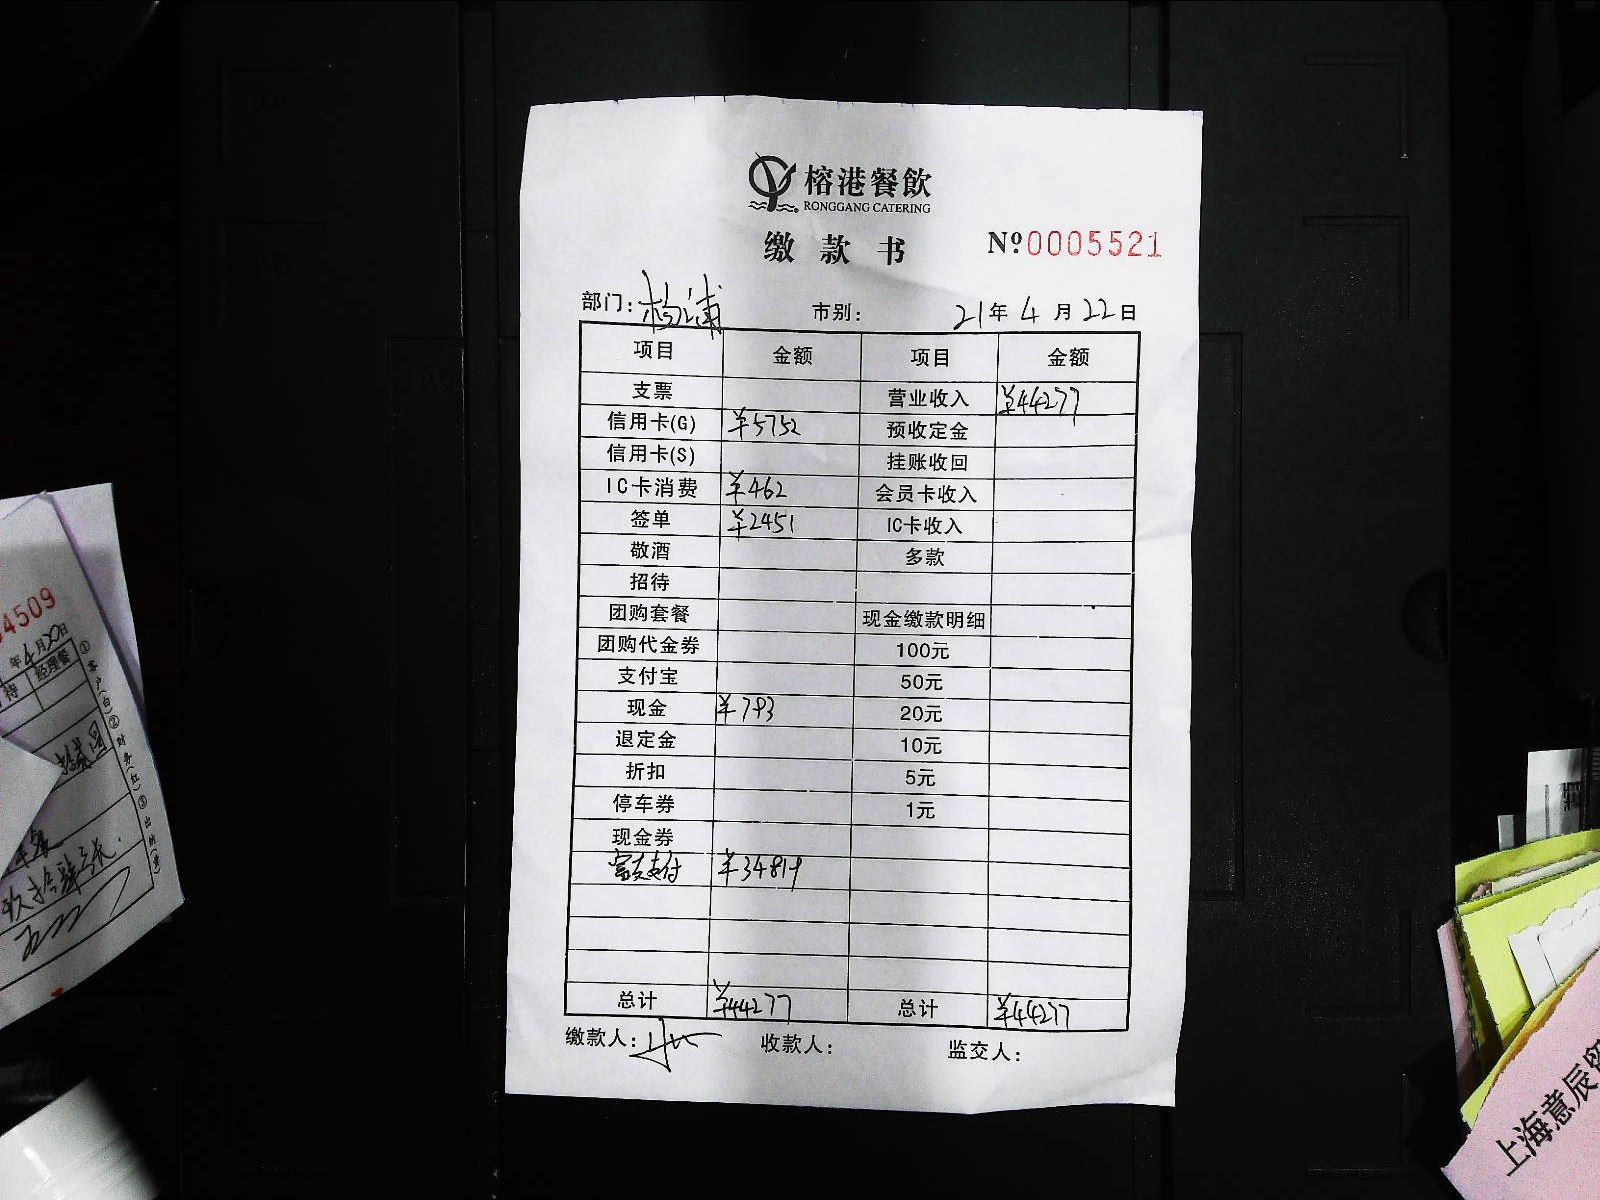 榕港餐飲
RONGGANG CATERING
缴款书
№0005521
部门：杨浦 市别： 21年4月22日
项目 金额 项目 金额
支票 营业收入 ¥44277
信用卡(G) ¥5752 预收定金
信用卡(S) 挂账收回
IC卡消费 ¥462 会员卡收入
签单 ¥2451 IC卡收入
敬酒 多款
招待
团购套餐 现金缴款明细
团购代金券 100元
支付宝 50元
现金 ¥793 20元
退定金 10元
折扣 5元
停车券 1元
现金券
富友支付 ¥34819
总计 ¥44277 总计 ¥44277
缴款人： 收款人： 监交人：
4509
年4月20日
待 经理餐
①客户(白)②财务(红)③出纳(黄)
上海意辰